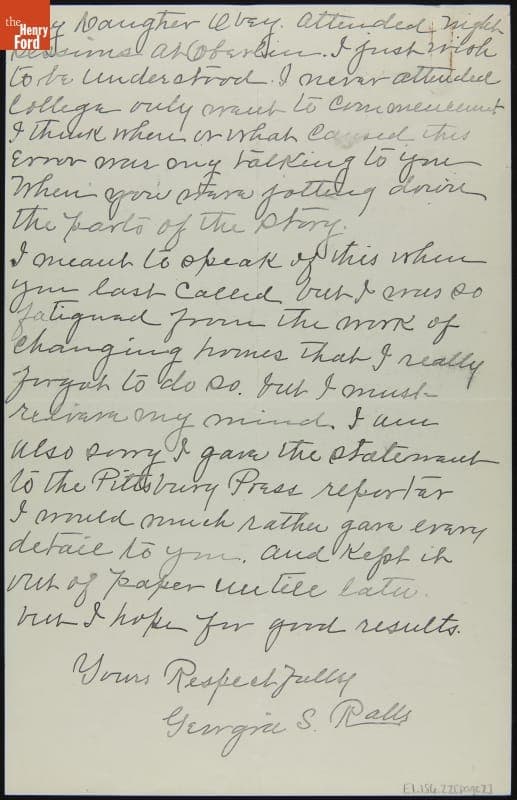 the
Henry
Ford
My Daugher Obey. attended night
sessions at Oberlin. I just wish
to be understood. I never attended
College only went to Commencement
I think when or what caused this
Error was my talking to you
When you were jotting down
the parts of the story.
I meant to speak of this when
you last called but I was so
fatigued from the work of
changing homes that I really
forgot to do so. but I must-
relieve my mind. I am
also sorry I gave the statement
to the Pittsburg Press reporter
I would much rather gave every
detail to you. and kept it
out of paper untill later.
but I hope for good results.
Yours Respectfully
Georgia S. Ralls
E1.186.22[page2]